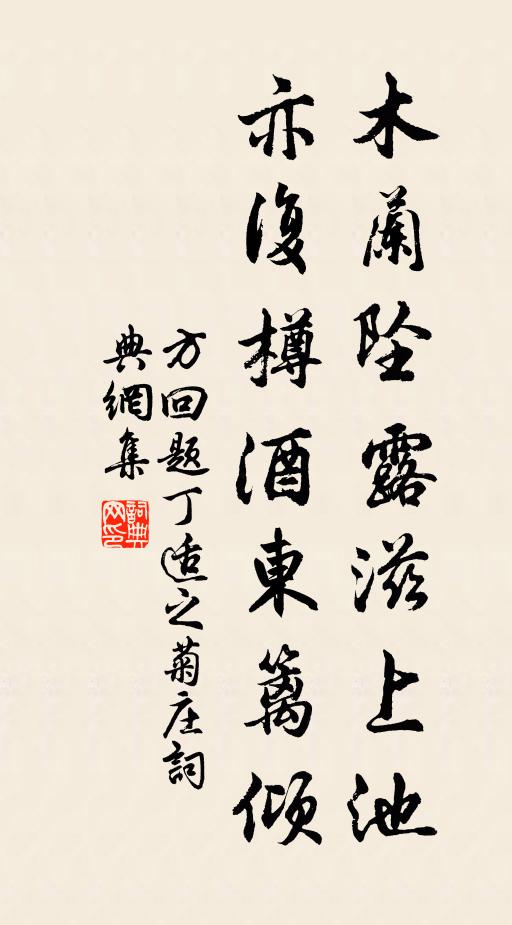 木蘭坠露滋上池
亦復樽酒東籬傾
方回题丁适之菊庄詞
典網集
詞典网印